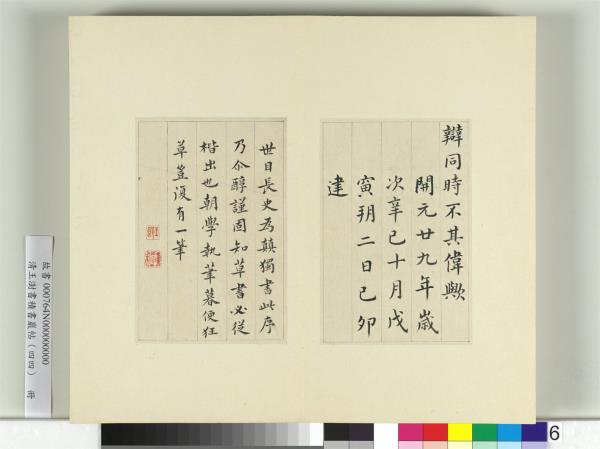 辯同時不其偉歟
開元廿九年歲
次辛巳十月戊
寅朔二日己卯
建
世目長史為顛獨書此序
乃尒醇謹固知草書必從
楷出也朝學執筆暮便狂
草豈復有一筆
故書000764N000000000
清王澍書積書巖帖（四四） 冊
6